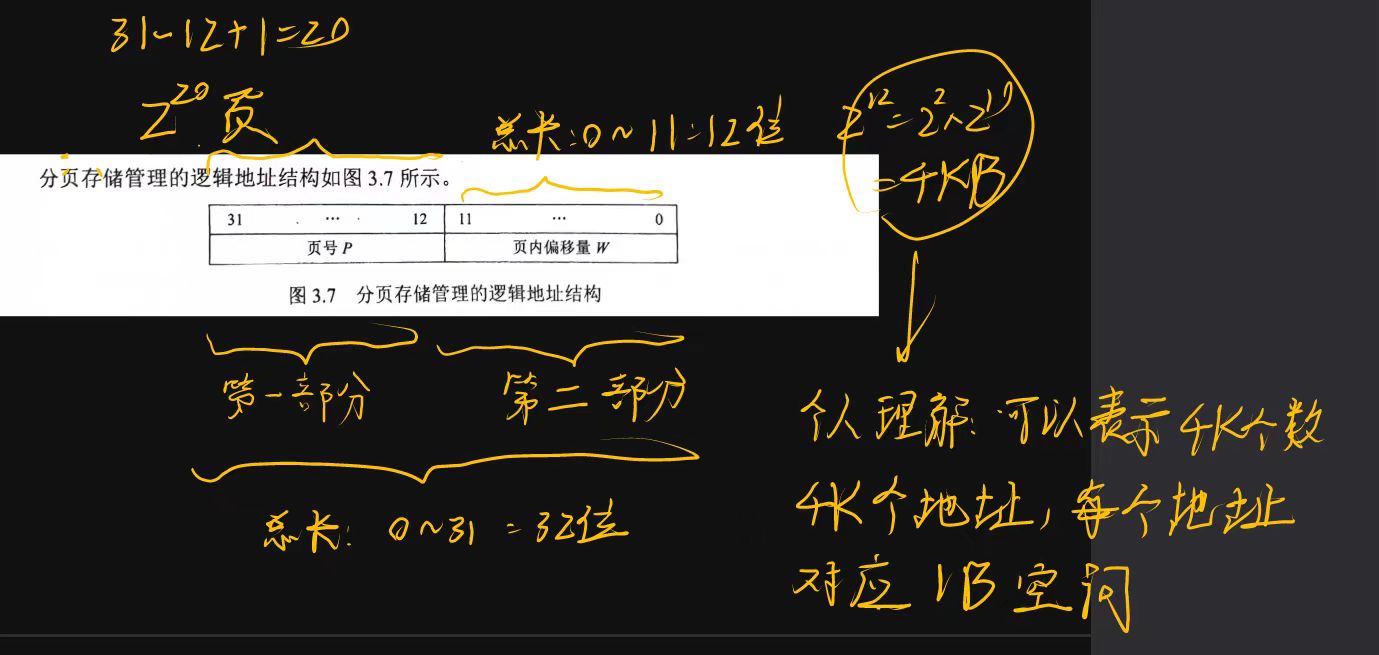 31-12+1=20
2^20 页
总长:0~11=12位
2^12=2^2×2^10
=4KB
分页存储管理的逻辑地址结构如图 3.7 所示。
31 … 12 11 … 0
页号 P 页内偏移量 W
图 3.7 分页存储管理的逻辑地址结构
第一部分 第二部分
总长: 0~31=32位
个人理解:可以表示4K个数
4K个地址,每个地址
对应1B空间